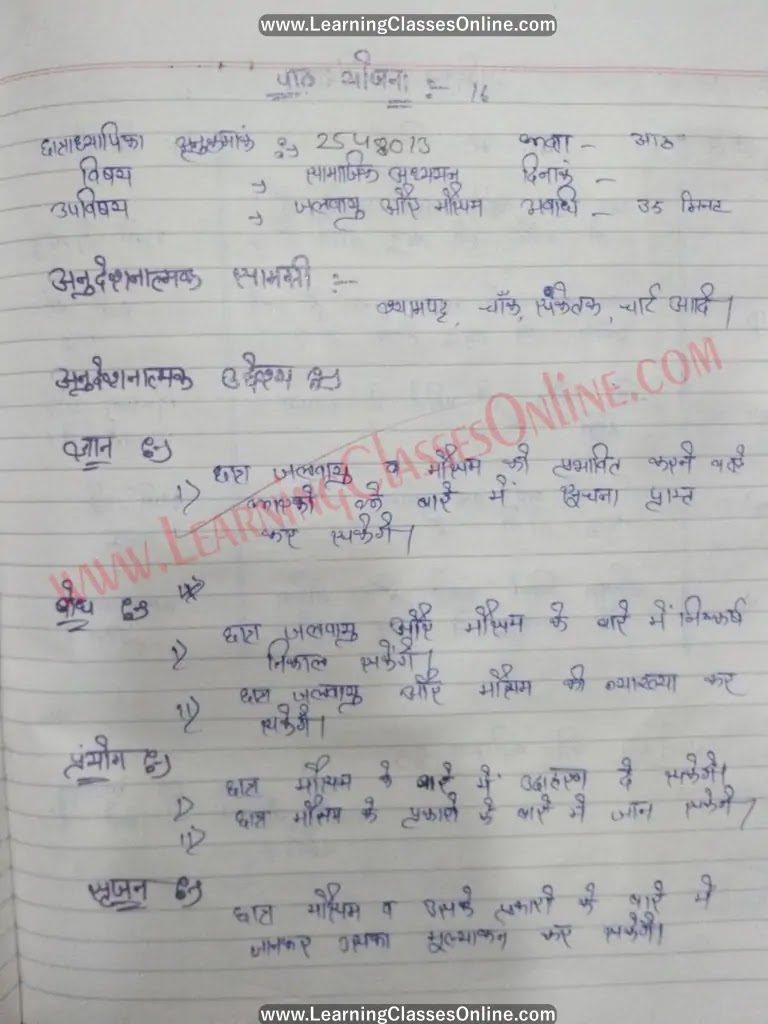 www.LearningClassesOnline.com
पाठ योजना :- 16
छात्राध्यापिका अनुक्रमांक :- 2548013 कक्षा - आठ
विषय → सामाजिक अध्ययन दिनांक -
उपविषय → जलवायु और मौसम अवधि - 35 मिनट
अनुदेशनात्मक सामग्री :-
श्यामपट्ट, चॉक, संकेतक, चार्ट आदि।
अनुदेशनात्मक उद्देश्य :-
ज्ञान :-
छात्र जलवायु व मौसम को प्रभावित करने वाले
1) कारकों के बारे में सूचना प्राप्त
कर सकेंगे।
www.LearningClassesOnline.com
बोध :-
छात्र जलवायु और मौसम के बारे में निष्कर्ष
1) निकाल सकेंगे।
छात्र जलवायु और मौसम की व्याख्या कर
11) सकेंगे।
प्रयोग :-
1) छात्र मौसम के बारे में उदाहरण दे सकेंगे।
11) छात्र मौसम के प्रकारों के बारे में जान सकेंगे।
सृजन :-
छात्र मौसम व उसके प्रकारों के बारे में
जानकर उसका मूल्यांकन कर सकेंगे।
www.LearningClassesOnline.com